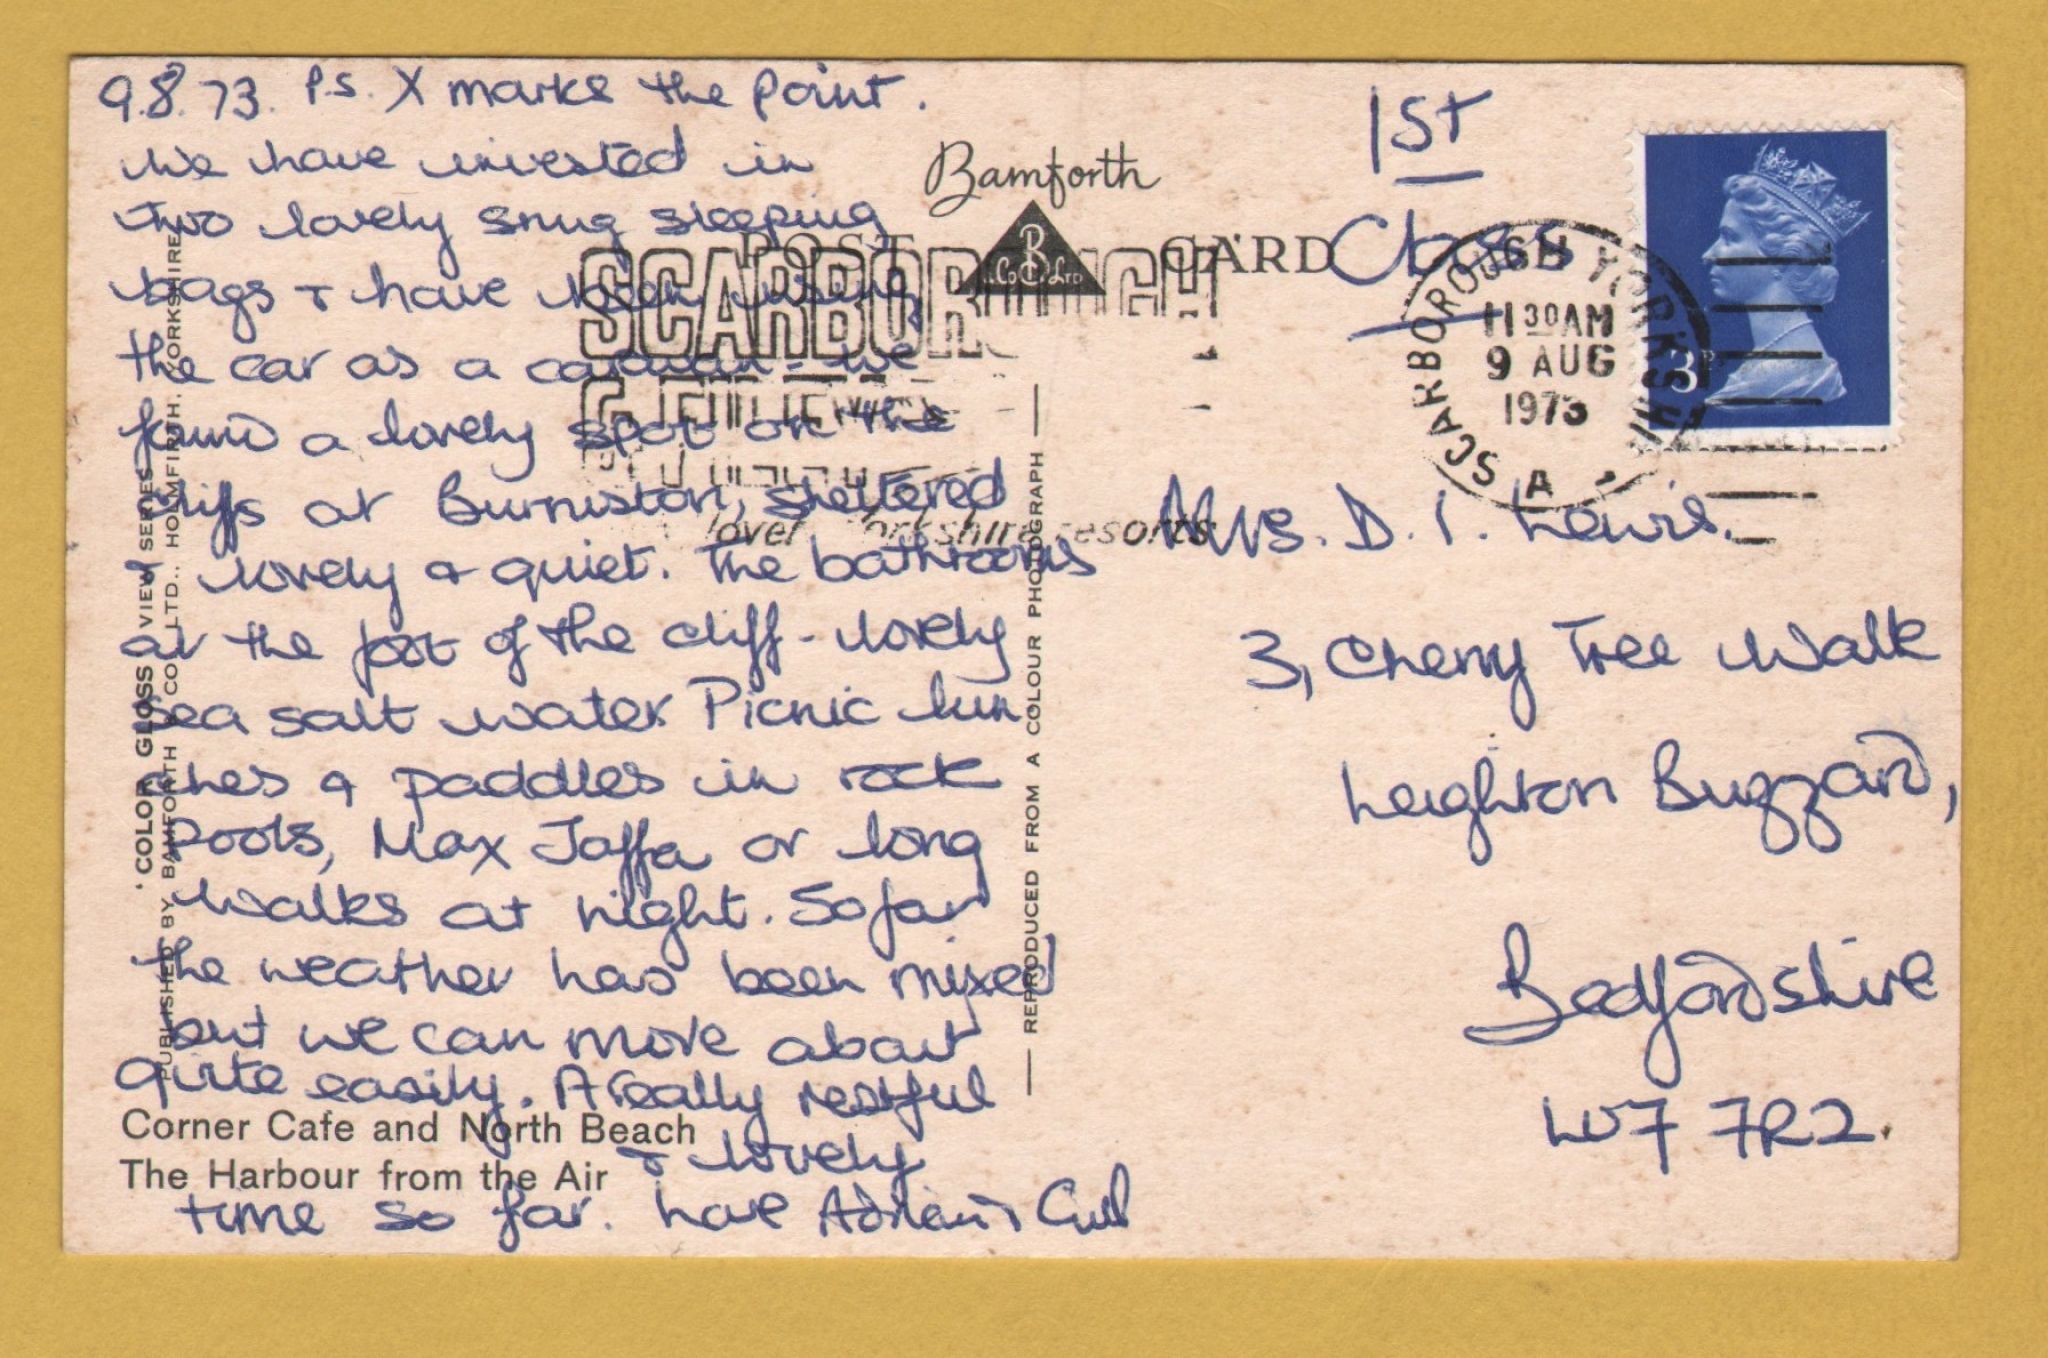 9.8.73. P.S. X marks the point.
We have invested in
two lovely snug sleeping
bags + have been using
the car as a caravan - we
found a lovely spot on the
cliffs at Burniston, sheltered
+ lovely & quiet. The bathrooms
at the foot of the cliff - lovely
sea salt water. Picnic lun
ches & paddles in rock
pools, Max Jaffa or long
walks at night. So far
the weather has been mixed
but we can move about
quite easily. A really restful
+ lovely
time so far. love Adrian +
Corner Cafe and North Beach
The Harbour from the Air
'COLOR GLOSS' VIEW SERIES
PUBLISHED BY BAMFORTH & CO. LTD., HOLMFIRTH, YORKSHIRE
Bamforth
POST CARD
B
& Co Ltd
REPRODUCED FROM A COLOUR PHOTOGRAPH
SCARBOROUGH
Yorkshire resorts
1st
Class
SCARBOROUGH YORKSHIRE
1130AM
9 AUG
1973
A
3P
Mrs. D. I. Lewis.
3, Cherry Tree Walk
Leighton Buzzard,
Bedfordshire
LU7 7R2.